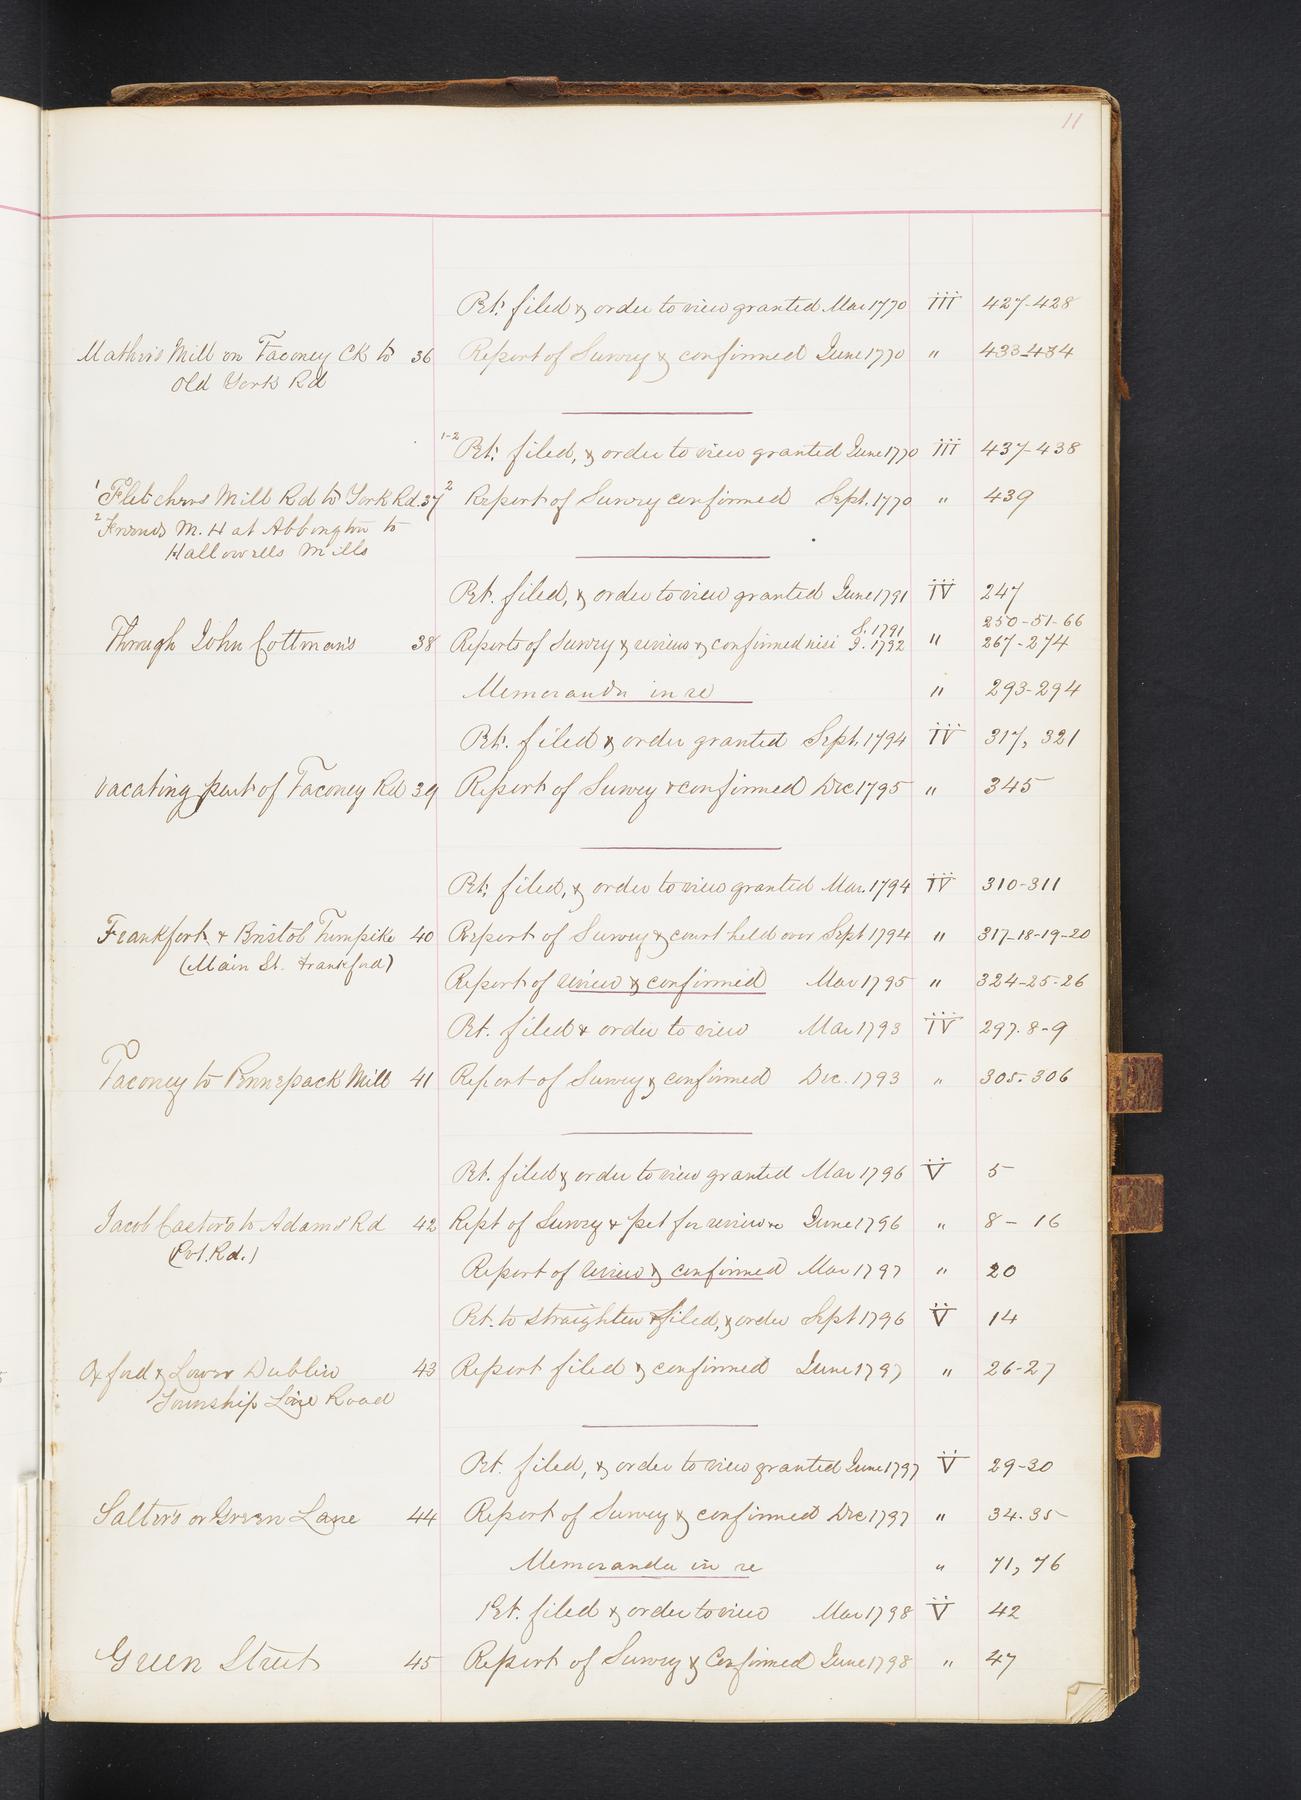 11
Pet. filed & order to view granted Mar 1770 III 427-428
Mathers Mill on Taconey Ck to 36 Report of Survey & confirmed June 1770 " 433-434
Old York Rd
1-2 Pet. filed, & order to view granted June 1770 III 437-438
1 Fletchers Mill Rd to York Rd. 37 2 Report of Survey confirmed Sept. 1770 " 439
2 Friends M. H at Abbington to
Hallowells Mills
Pet. filed, & order to view granted June 1791 IV 247
S. 1791 250-51-66
Through John Cottman's 38 Reports of Survey & reviews & confirmed nisi J. 1792 " 267-274
Memoranda in re " 293-294
Pet. filed & order granted Sept. 1794 IV 317, 321
Vacating part of Taconey Rd 39 Report of Survey & confirmed Dec 1795 " 345
Pet. filed, & order to view granted Mar. 1794 IV 310-311
Frankfort & Bristol Turnpike 40 Report of Survey & court held over Sept 1794 " 317-18-19-20
(Main St. Frankford)
Report of review & confirmed Mar 1795 " 324-25-26
Pet. filed & order to view Mar 1793 IV 297.8-9
Taconey to Pennepack Mill 41 Report of Survey & confirmed Dec. 1793 " 305.306
Pet. filed & order to view granted Mar 1796 V 5
Jacob Castor's to Adams Rd 42 Rept of Survey & pet for review June 1796 " 8 - 16
(Pvt. Rd.)
Report of review & confirmed Mar 1797 " 20
Pet. to straighten filed, & order Sept 1796 V 14
Oxford & Lower Dublin 43 Report filed & confirmed June 1797 " 26-27
Township Line Road
Pet. filed, & order to view granted June 1797 V 29-30
Salter's or Green Lane 44 Report of Survey & confirmed Dec 1797 " 34.35
Memoranda in re " 71, 76
Pet. filed & order to view Mar 1798 V 42
Green Street 45 Report of Survey & Confirmed June 1798 " 47